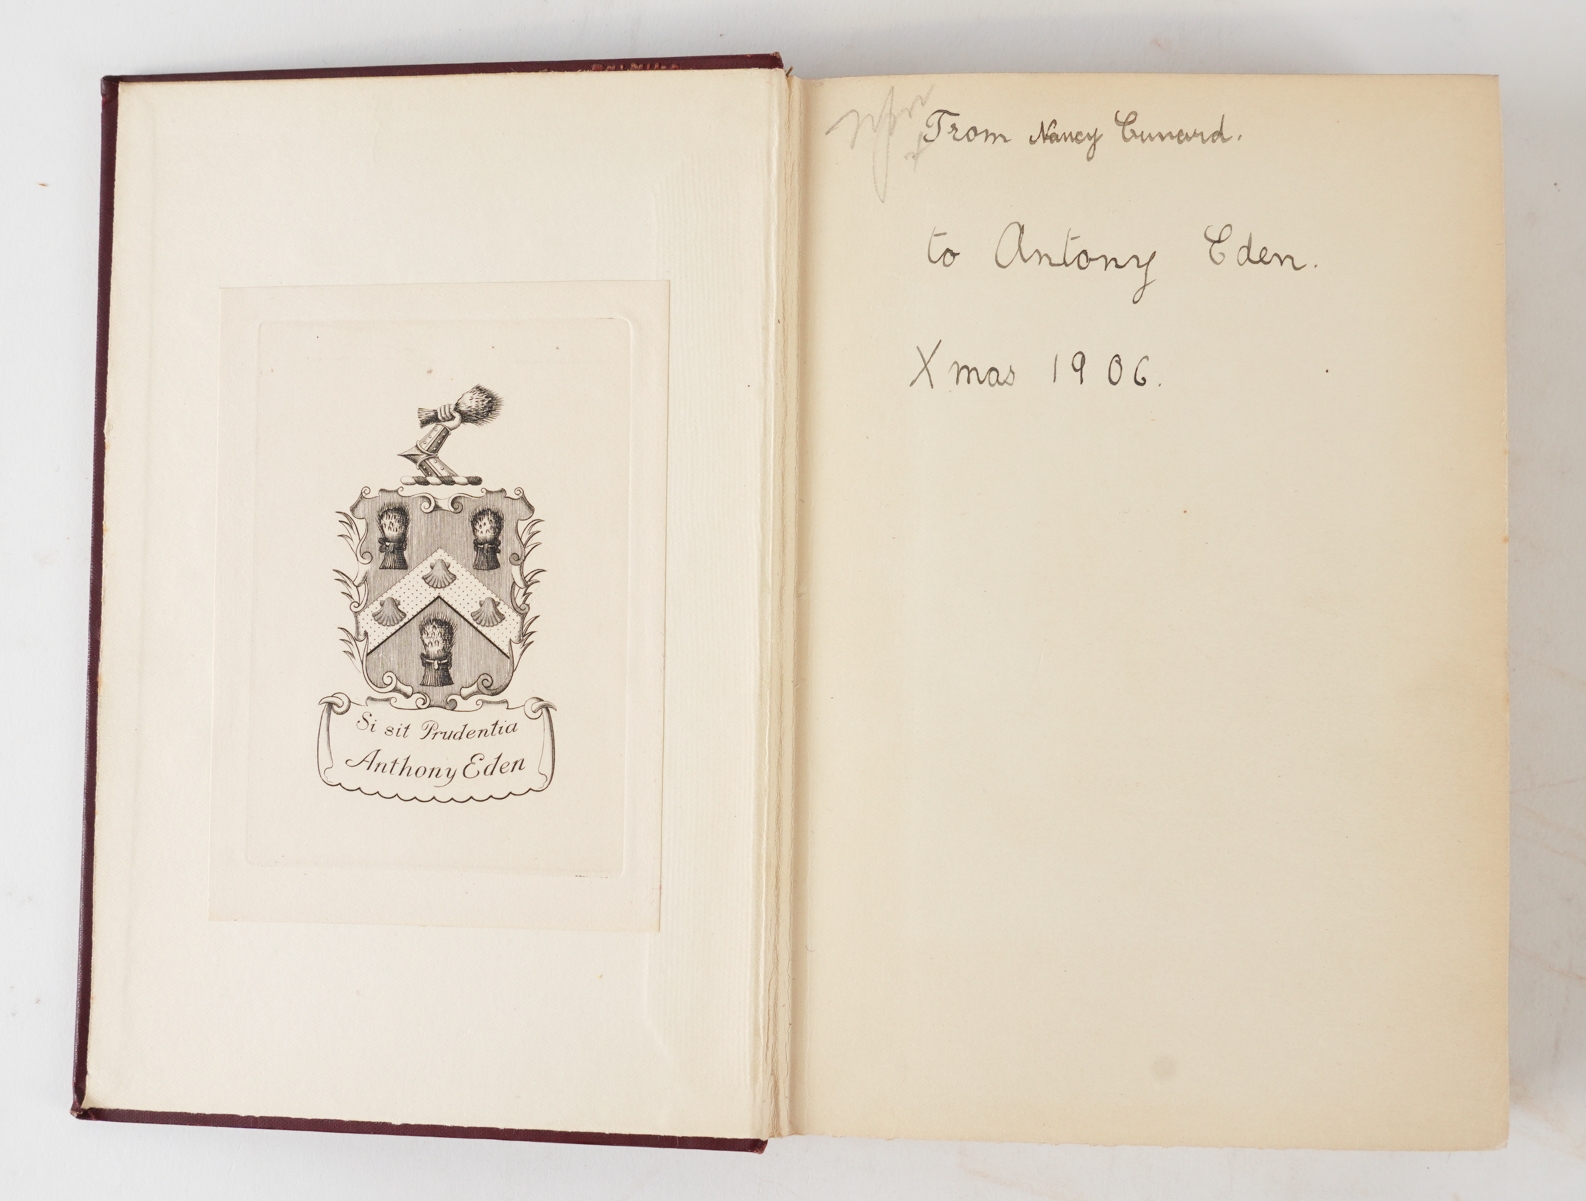 Si sit Prudentia
Anthony Eden
From Nancy Cunard.
to Antony Eden.
Xmas 1906.